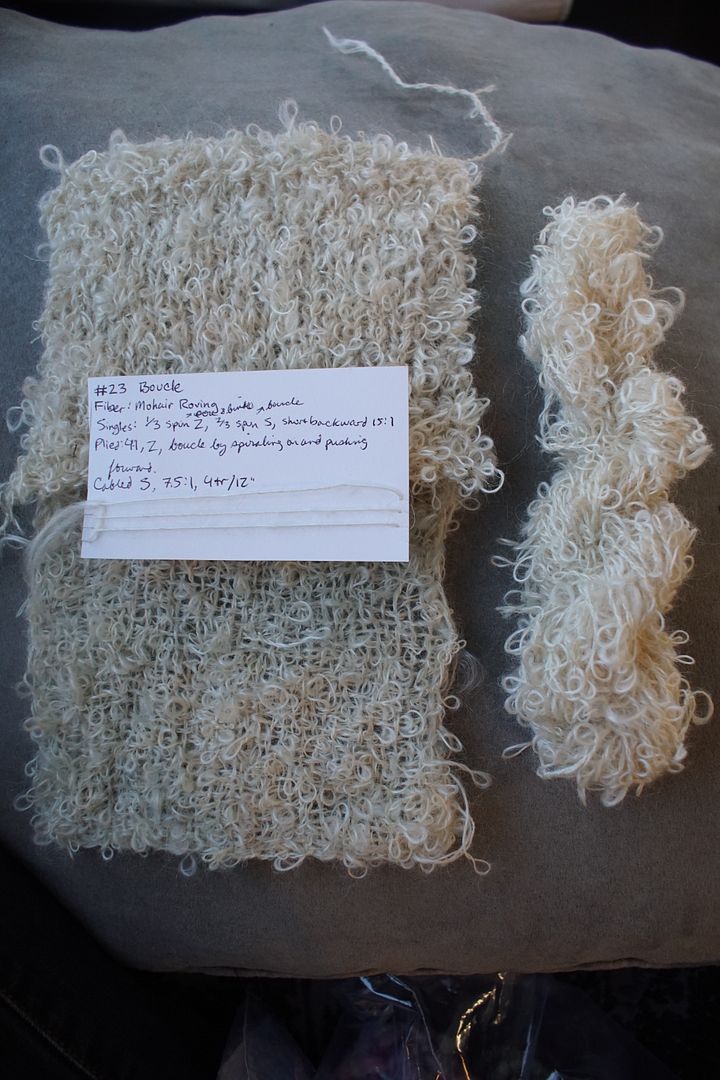 #23 Boucle
Fiber: Mohair Roving
core & binder boucle
Singles: 1/3 spin Z, 2/3 spin S, short backward 15:1
Plied: 4:1, Z, boucle by spiraling on and pushing
forward.
Cabled S, 7.5:1, 4tr/12"